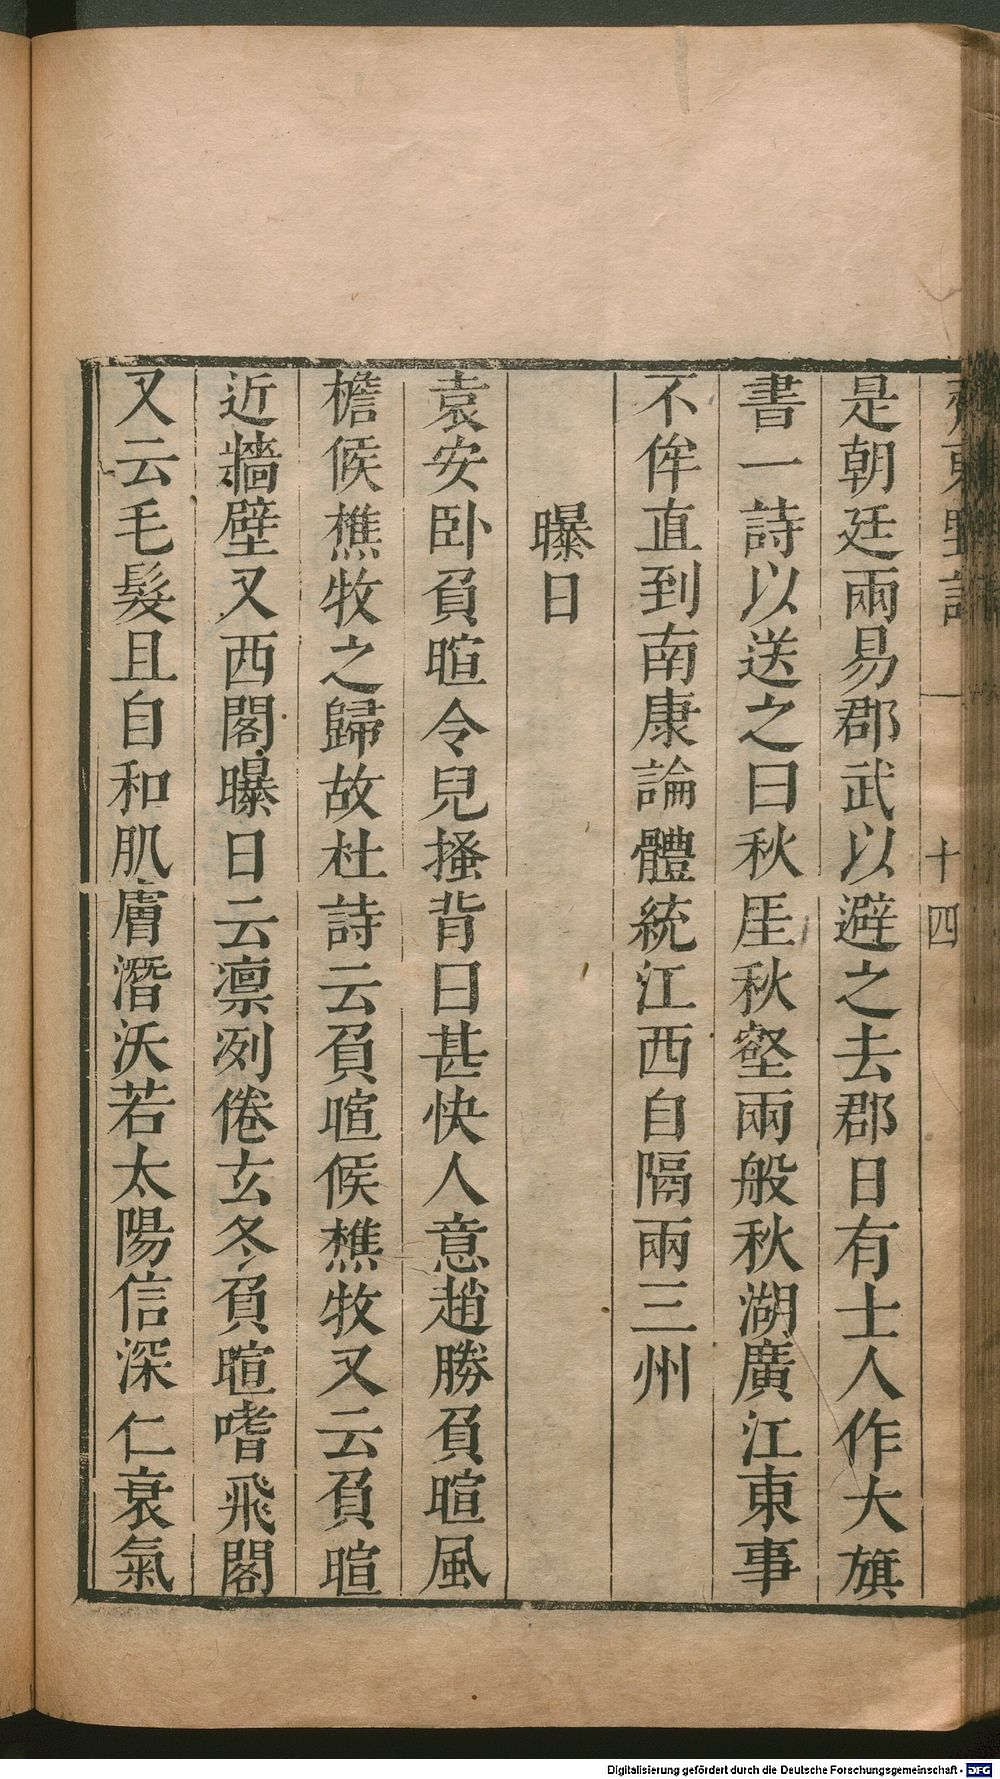 齊東野語
一
十四
是朝廷兩易郡武以避之去郡日有士人作大旗
書一詩以送之曰秋厓秋壑兩般秋湖廣江東事
不侔直到南康論體統江西自隔兩三州
曝日
袁安卧負暄令兒搔背曰甚快人意趙勝負暄風
檐候樵牧之歸故杜詩云負暄候樵牧又云負暄
近牆壁又西閣曝日云凛冽倦玄冬負暄嗜飛閣
又云毛髮且自和肌膚潛沃若太陽信深仁衰氣
Digitalisierung gefördert durch die Deutsche Forschungsgemeinschaft - DFG